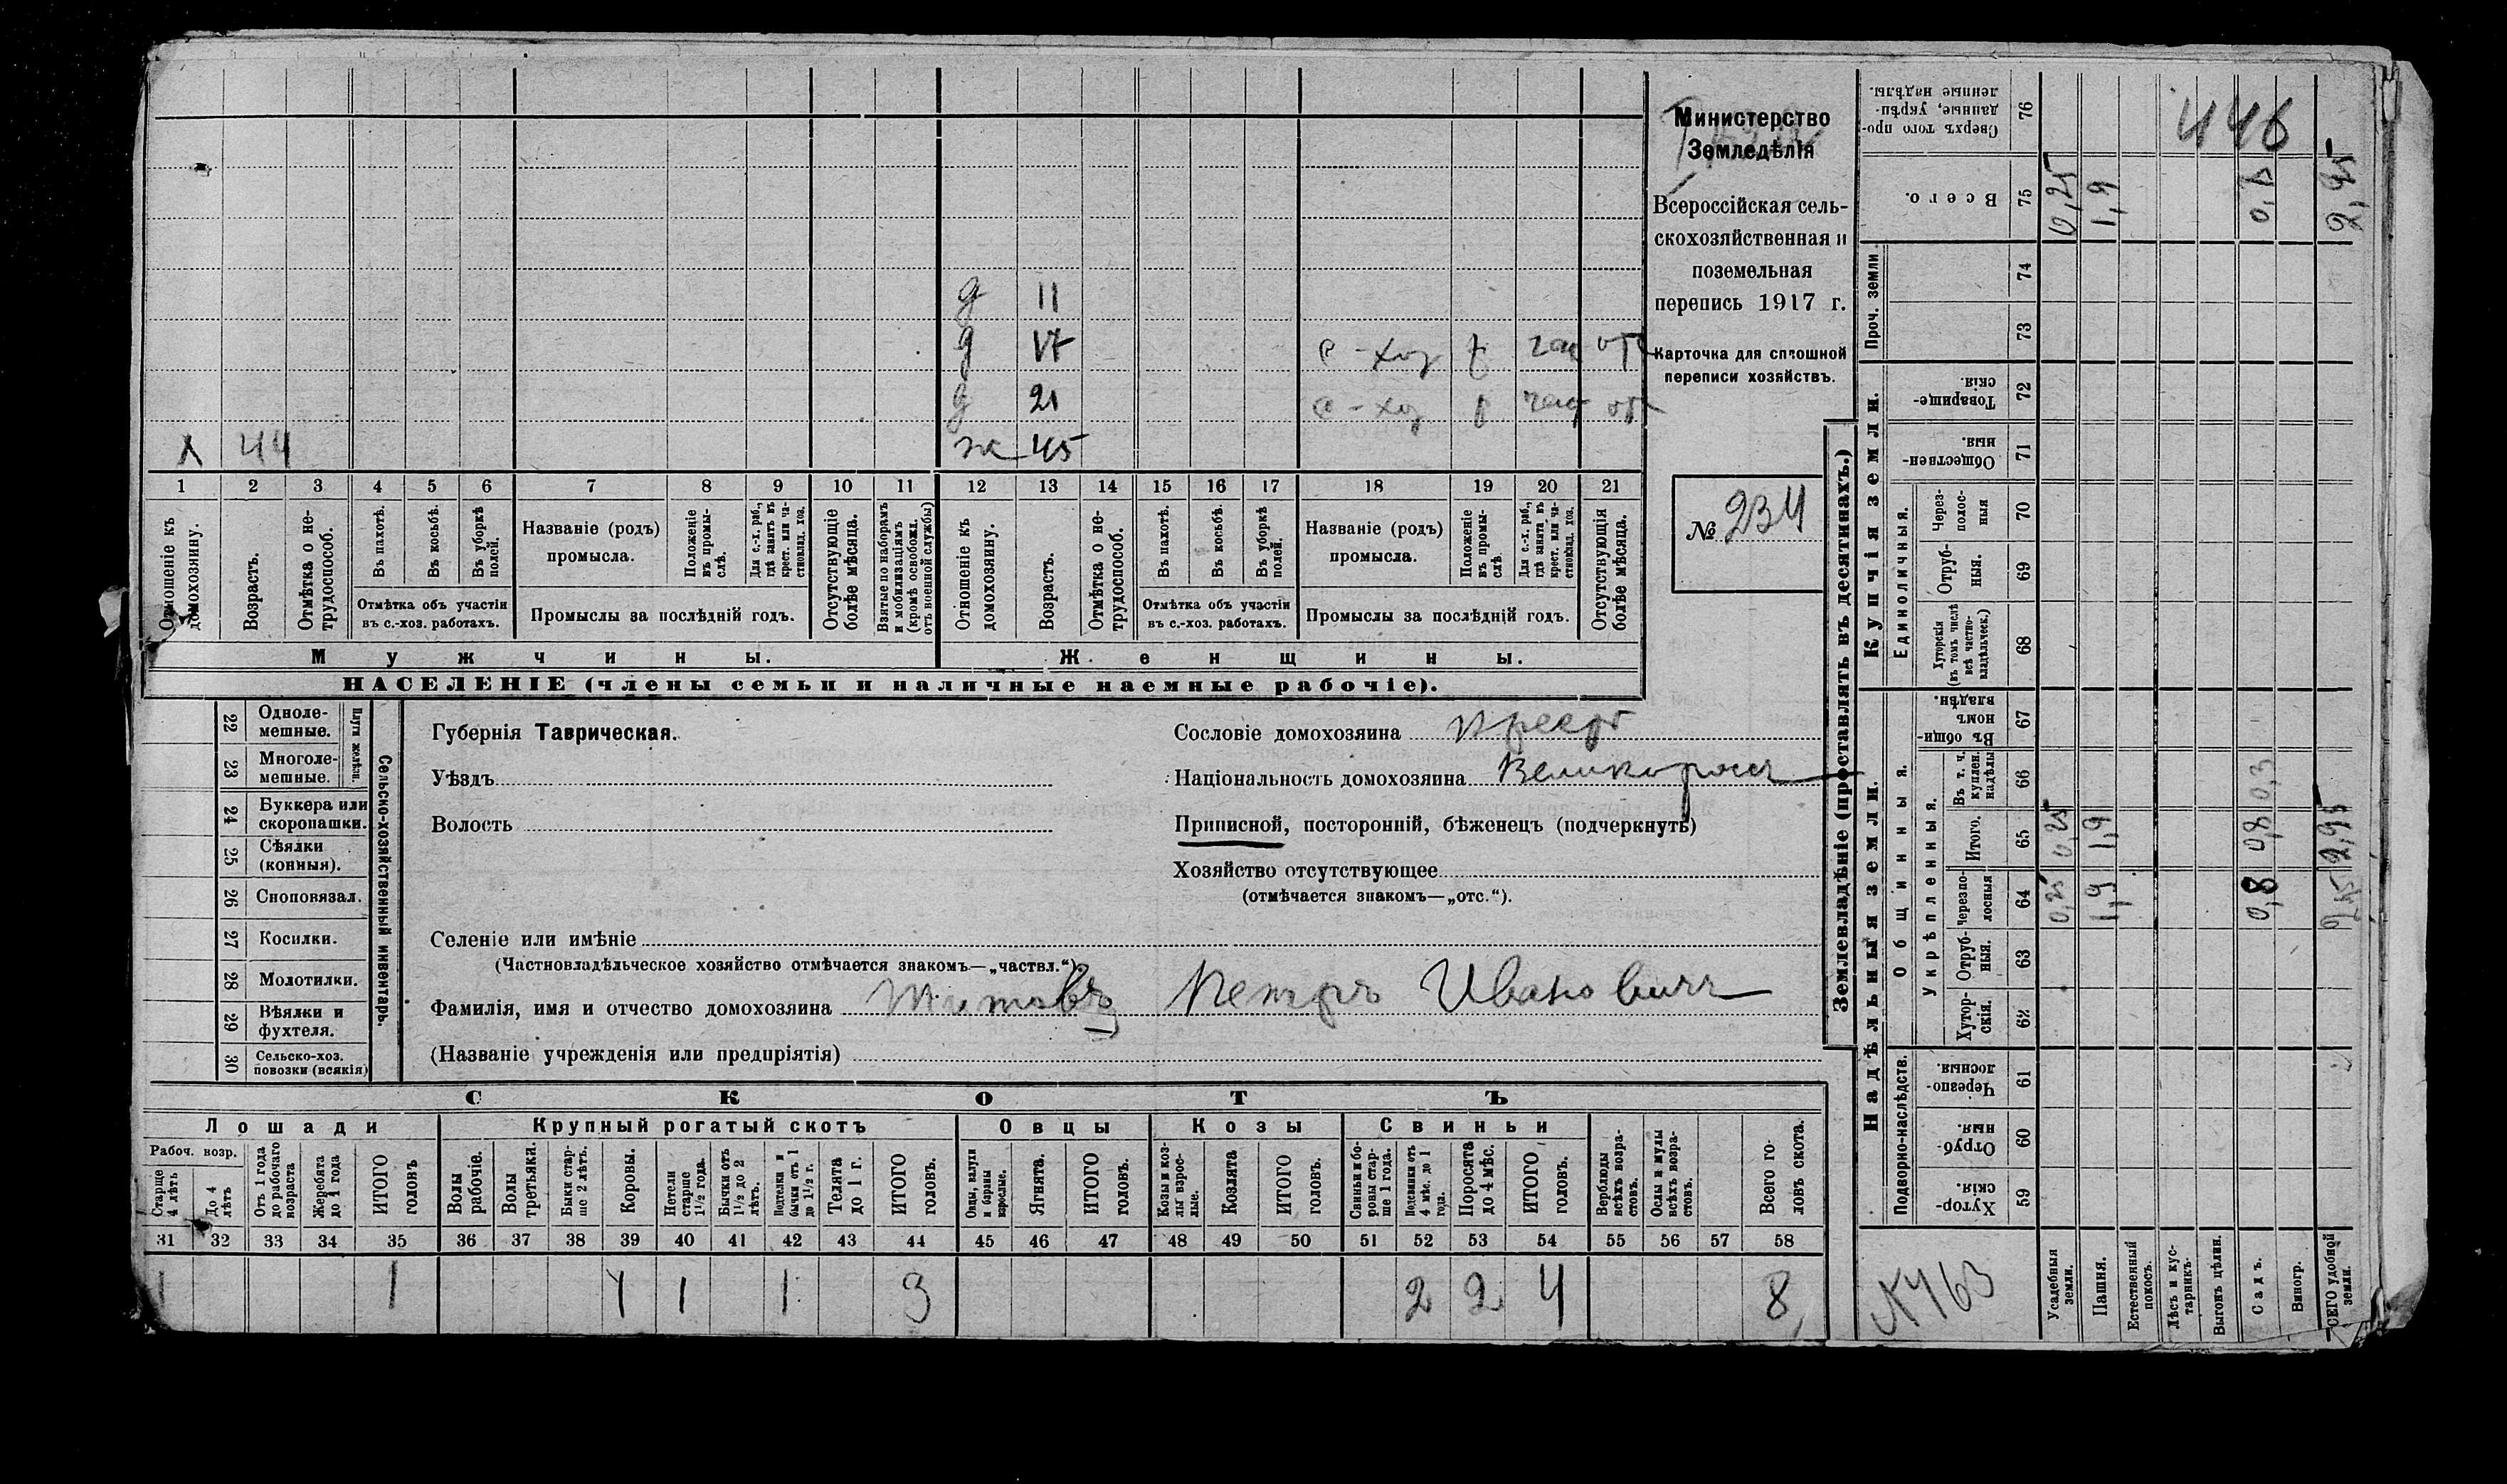 Министерство
Земледѣлія
Всероссійская сель-
скохозяйственная и
поземельная
перепись 1917 г.
Карточка для сплошной
переписи хозяйствъ.
№ 234
д 11
д 17 с-хоз
д 21 с-хоз
х 44 ж 45
1 2 3 4 5 6 7 8 9 10 11 12 13 14 15 16 17 18 19 20 21
Отношеніе къ домохозяину.
Возрастъ.
Отмѣтка о не-трудоспособ.
Въ пахотѣ.
Въ косьбѣ.
Въ уборкѣ полей.
Отмѣтка объ участіи
въ с.-хоз. работахъ.
Названіе (родъ)
промысла.
Положеніе въ промы-слѣ.
Для с.-х. раб., гдѣ занятъ въ крест. или ча-стновлад. хоз.
Промыслы за послѣдній годъ.
Отсутствующіе болѣе мѣсяца.
Взятые по наборамъ и мобилизаціямъ (кромѣ освобожд. отъ военной службы)
Отношеніе къ домохозяину.
Возрастъ.
Отмѣтка о не-трудоспособ.
Въ пахотѣ.
Въ косьбѣ.
Въ уборкѣ полей.
Отмѣтка объ участіи
въ с.-хоз. работахъ.
Названіе (родъ)
промысла.
Положеніе въ промы-слѣ
Для с.-х. раб., гдѣ занятъ въ крест. или ча-стновлад. хоз.
Промыслы за послѣдній годъ.
Отсутствующія болѣе мѣсяца.
Мужчины.
Женщины.
НАСЕЛЕНІЕ (члены семьи и наличные наемные рабочіе).
Сельско-хозяйственный инвентарь.
Плуги желѣзн.
22 Одноле-мешные.
23 Многоле-мешные.
24 Буккера или скоропашки.
25 Сѣялки (конныя).
26 Сноповязал.
27 Косилки.
28 Молотилки.
29 Вѣялки и фухтеля.
30 Сельско-хоз. повозки (всякія)
Губернія Таврическая.
Уѣздъ
Волость
Сословіе домохозяина крест
Національность домохозяина Великороссъ
Приписной, посторонній, бѣженецъ (подчеркнуть)
Хозяйство отсутствующее
(отмѣчается знакомъ—„отс.“).
Селеніе или имѣніе
(Частновладѣльческое хозяйство отмѣчается знакомъ—„частвл.“).
Фамилія, имя и отчество домохозяина Титовъ Петръ Ивановичъ
(Названіе учрежденія или предпріятія)
СКОТЪ
Лошади
Крупный рогатый скотъ
Овцы
Козы
Свиньи
Рабоч. возр.
Старше 4 лѣтъ
До 4 лѣтъ
Отъ 1 года до рабочаго возраста
Жеребята до 1 года
ИТОГО головъ
Волы рабочіе.
Волы третьяки.
Быки стар-ше 2 лѣтъ.
Коровы.
Нетели старше 1½ года.
Бычки отъ 1½ до 2 лѣтъ.
Подтелки и бычки отъ 1 до 1½ г.
Телята до 1 г.
ИТОГО головъ.
Овцы, валухи и бараны взрослые.
Ягнята.
ИТОГО головъ.
Козы и коз-лы взрос-лые.
Козлята
ИТОГО головъ.
Свиньи и бо-ровы стар-ше 1 года.
Подсвинки отъ 4 мѣс. до 1 года.
Поросята до 4 мѣс.
ИТОГО головъ.
Верблюды всѣхъ возра-стовъ.
Ослы и мулы всѣхъ возра-стовъ.
Всего го-ловъ скота.
31 32 33 34 35 36 37 38 39 40 41 42 43 44 45 46 47 48 49 50 51 52 53 54 55 56 57 58
1 1 1 1 1 3 2 2 4 8
Землевладѣніе (проставлять въ десятинахъ.)
Надѣльныя земли.
Купчія земли.
Проч. земли
Подворно-наслѣдств.
Общинныя.
Укрѣпленныя.
Единоличныя.
59 Хутор-скія.
60 Отруб-ныя.
61 Черезпо-лосныя.
62 Хутор-скія.
63 Отруб-ныя.
64 Черезпо-лосныя
65 Итого.
66 Въ т. ч. куплен. надѣлы
67 Въ общи-номъ владѣн.
68 Хуторскія (въ томъ числѣ всѣ частно-владѣльческ.)
69 Отруб-ныя.
70 Через-полос-ныя
71 Обществен-ныя.
72 Товарище-скія.
73
74
75 Всего.
76 Сверхъ того про-данные, укрѣп-ленные надѣлы.
Усадебныя земли. 0,25 0,25 0,25
Пашня. 1,9 1,9 1,9
Естественный покосъ.
Лѣсъ и кус-тарникъ.
Выгонъ цѣлин.
Садъ. 0,8 0,8 0,3 0,8
Виногр.
ВСЕГО удобной земли. 2,95 2,95 2,95
446
№463